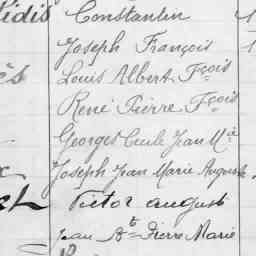 lidis Constantin
Joseph François
ès Louis Albert Fçois
René Pierre Fçois
Georges Emile Jean Mie
Joseph Jean Marie Auguste
Victor august
Jean Bte Pierre Marie